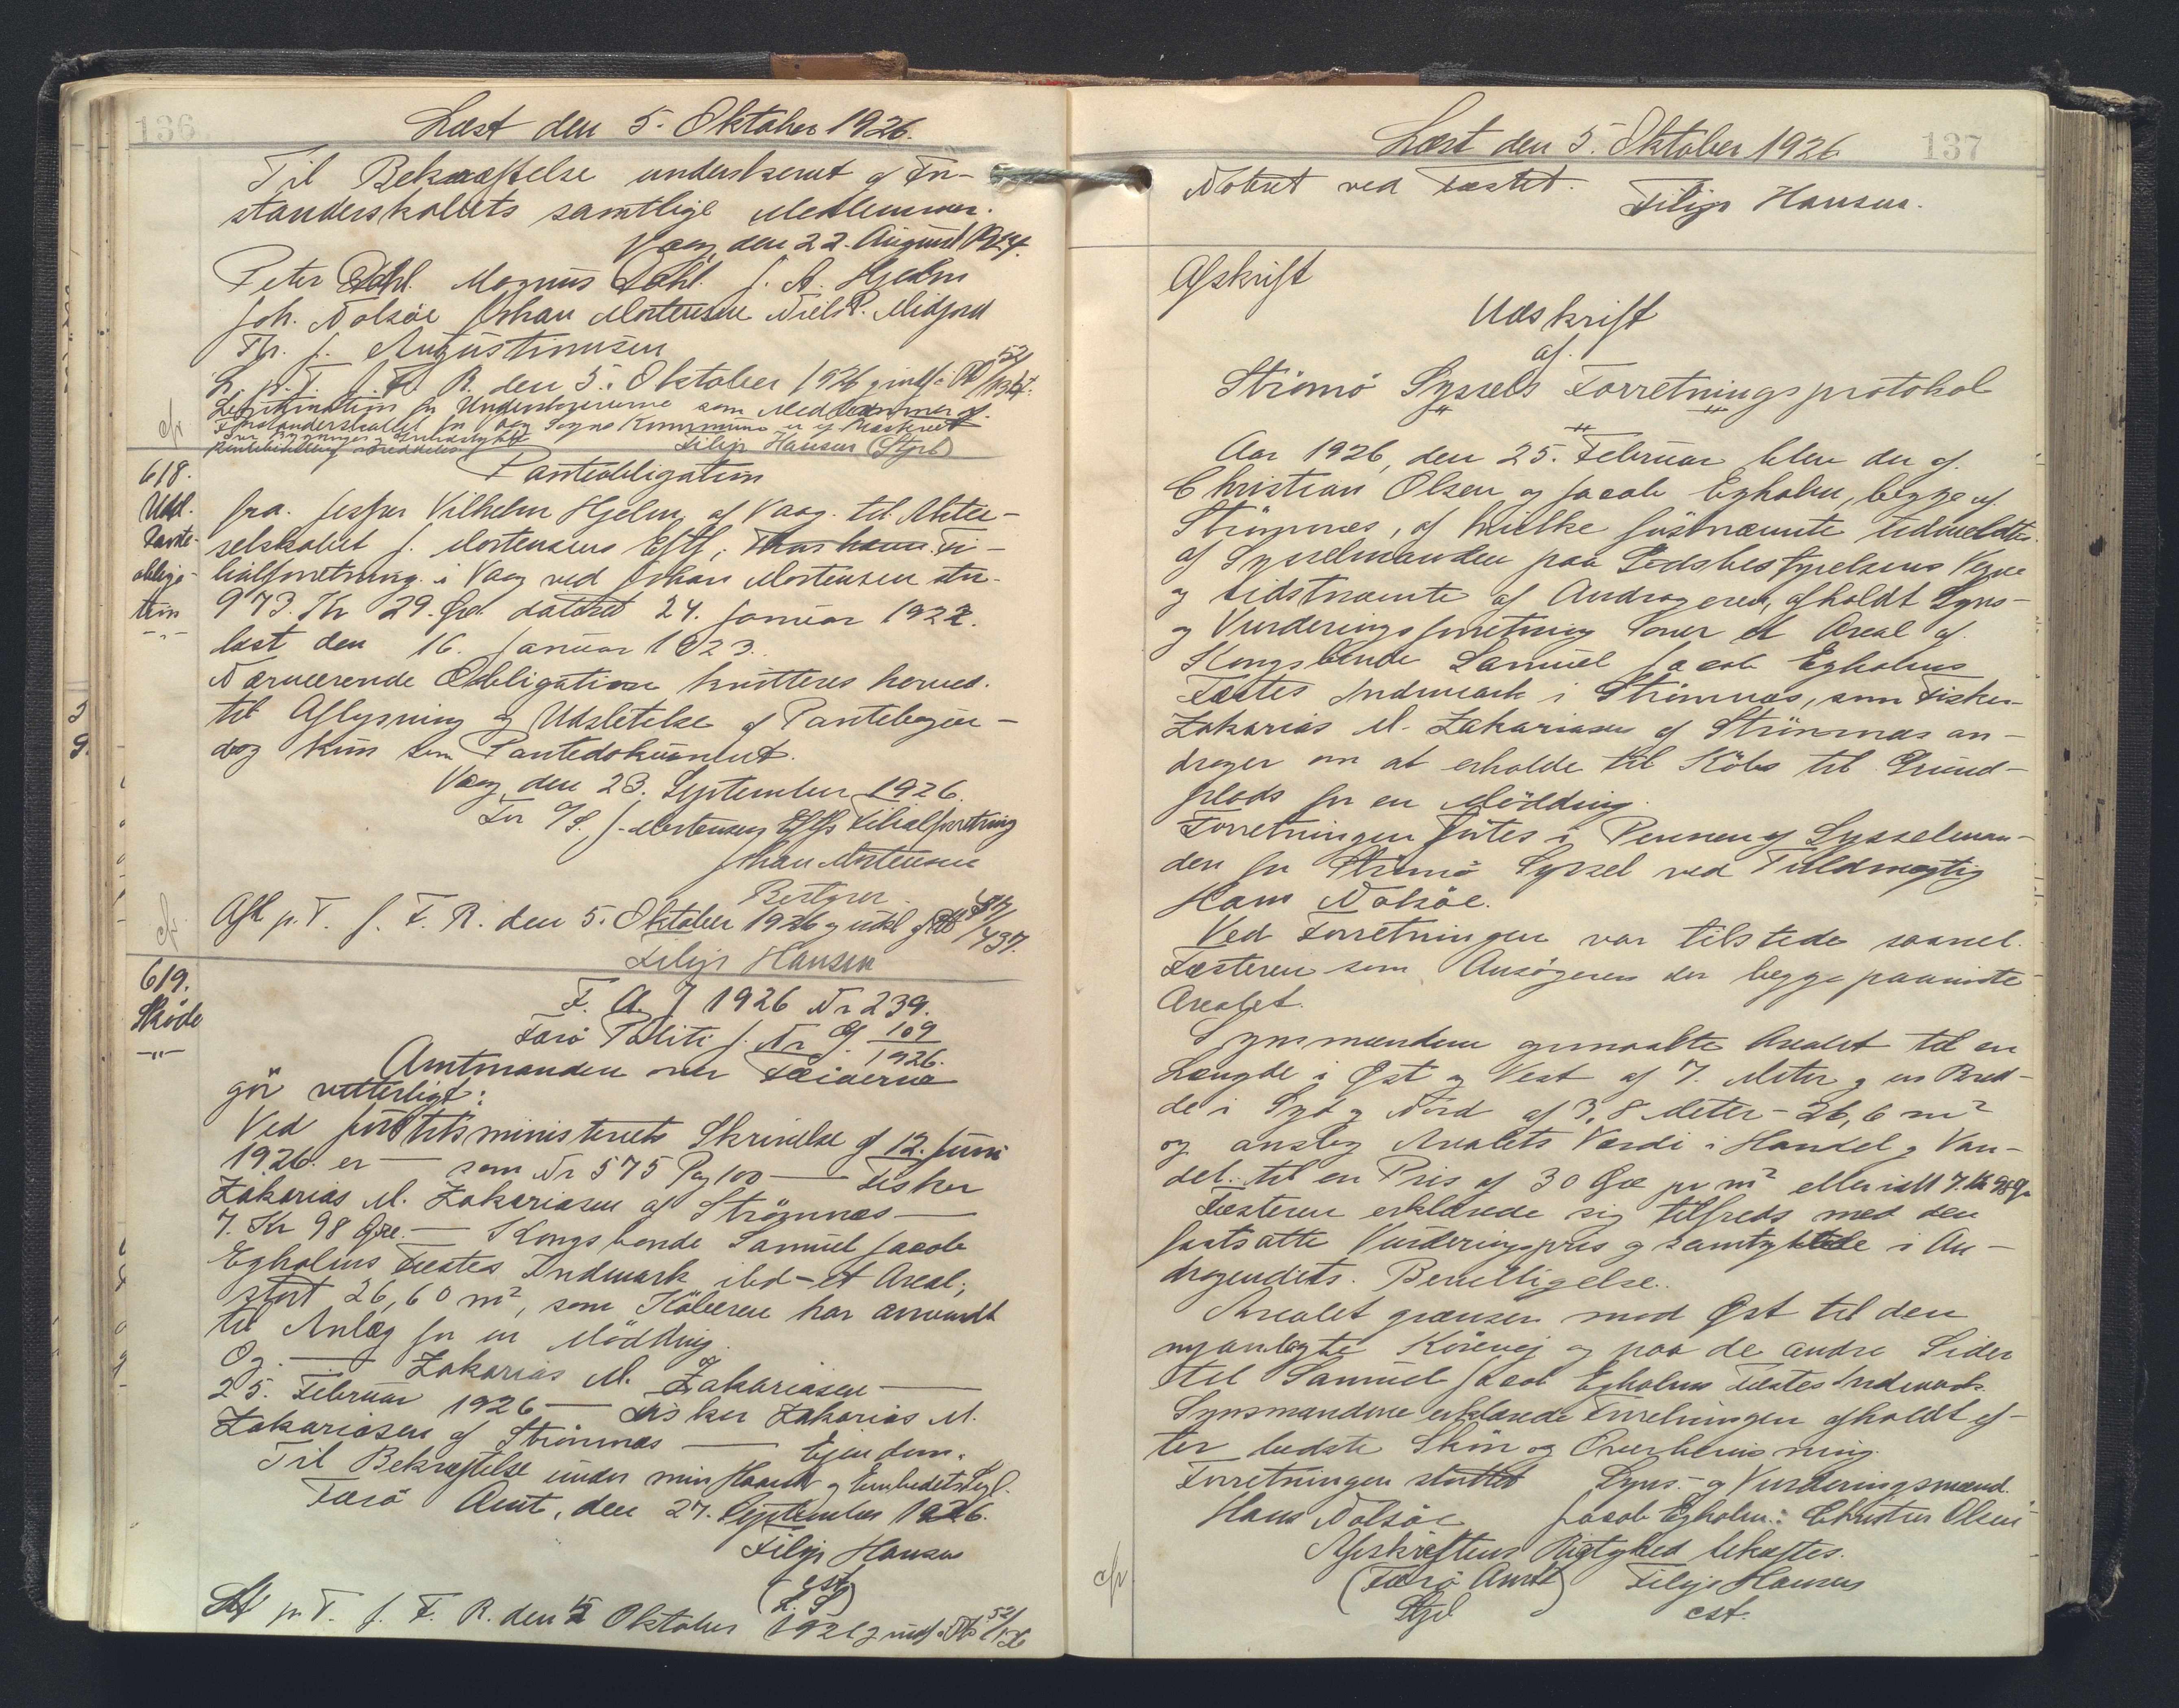 136
Læst den 5. Oktober 1926.
Til Bekræftelse underskrevet af For-
standerskabets samtlige Medlemmer.
Vaag, den 22. August 1924.
Peter Dahl. Magnus Dahl. J. A. Hjelm
Joh. Nolsøe Johan Mortensen Niels P. Midjord
Th. J. Augustinusen
L. p. T. f. F. R. den 5. Oktober 1926 g indf i Pb 52/
Legitimation for Underskriverne som Medlemmer af
Forstanderskabet for Vaag Sogns Kommune er ej
Filip Hansen (Stpl)
618.
Udsl.
Pante-
obliga-
tion
Panteobligation
fra Jesper Vilhelm Hjelm af Vaag til Aktie-
selskabet J. Mortensens Eftf, Thorshavn Fi-
lialforretning i Vaag ved Johan Mortensen stor
973. Kr 29. Øre dateret 24. Januar 1922.
læst den 16. Januar 1923.
Nærværende Obligation kvitteres herved
til Aflysning og Udslettelse af Pantebogen -
dog kun som Pantedokument.
Vaag, den 23. September 1926.
For A/S. J. Mortensens Eftfs Filialforretning
Johan Mortensen
Bestyrer
Afl p. T. f. F. R. den 5. Oktober 1926 g udsl af Pb 47/437.
Filip Hansen
619.
Skøde
F. A. J 1926 Nr 239.
Færø Politi J. Nr G 109
1926.
Amtmanden over Færøerne
gør vitterligt:
Ved Justitsministeriets Skrivelse af 12. Juni
1926 er — som Nr 575 Pag 100 — Fisker
Zakarias M. Zakariasen af Strømnæs —
7. Kr 98 Øre. — Kongsbonde Samuel Jacob
Egholms Fæstes Indmark ibd - et Areal,
stort 26,60 m², som Køberen har anvendt
til Anlæg for en Mødding.
Og — Zakarias M. Zakariasen —
25. Februar 1926 — Fisker Zakarias M.
Zakariasen af Strømnæs — Ejendom.
Til Bekræftelse under min Haand og Embedets Segl.
Færø Amt, den 27. September 1926.
Filip Hansen
cst
(L. S)
L p. T. f. F. R. den 5 Oktober 1926 g indf i Pb 52/126
137
Læst den 5. Oktober 1926
Noteret ved Fæstet.
Filip Hansen.
Afskrift
Udskrift
af
Strømø Syssels Forretningsprotokol
Aar 1926, den 25. Februar blev der af
Christian Olsen og Jacob Egholm, begge af
Strømnæs, af hvilke førstnævnte udmeldt
af Sysselmanden paa Godsbestyrelsens Vegne
og sidstnævnte af Andrageren, afholdt Syns-
og Vurderingsforretning over et Areal af
Kongsbonde Samuel Jacob Egholms
Fæstes Indmark i Strømnæs, som Fisker
Zakarias M. Zakariasen af Strømnæs an-
drager om at erholde til Købs til Grund-
plads for en Mødding.
Forretningen førtes i Pennen af Sysselman-
den for Strømø Syssel ved Fuldmægtig
Hans Nolsøe.
Ved Forretningen var tilstede saavel
Fæsteren som Ansøgeren der begge paaviste
Arealet.
Synsmændene opmaalte Arealet til en
Længde i Øst og Vest af 7. Meter g en Bred-
de i Syd g Nord af 3,8 Meter - 26,6 m²
og anslog Arealets Værdi i Handel g Van-
del til en Pris af 30 Øre pr m² eller ialt 7. Kr 98 Ø.
Fæsteren erklærede sig tilfreds med den
fastsatte Vurderingspris g samtykkede i An-
dragendets Bevilligelse.
Arealet grænser mod Øst til den
nyanlagte Kørevej og paa de andre Sider
til Samuel Jacob Egholms Fæstes Indmark.
Synsmændene erklærede Forretningen afholdt ef-
ter bedste Skøn og Overbevisning.
Forretningen sluttet Syns- og Vurderingsmænd.
Hans Nolsøe Jacob Egholm: Christen Olsen
Afskriftens Rigtighed bekræftes.
(Færø Amt) Filip Hansen
Stpl cst.